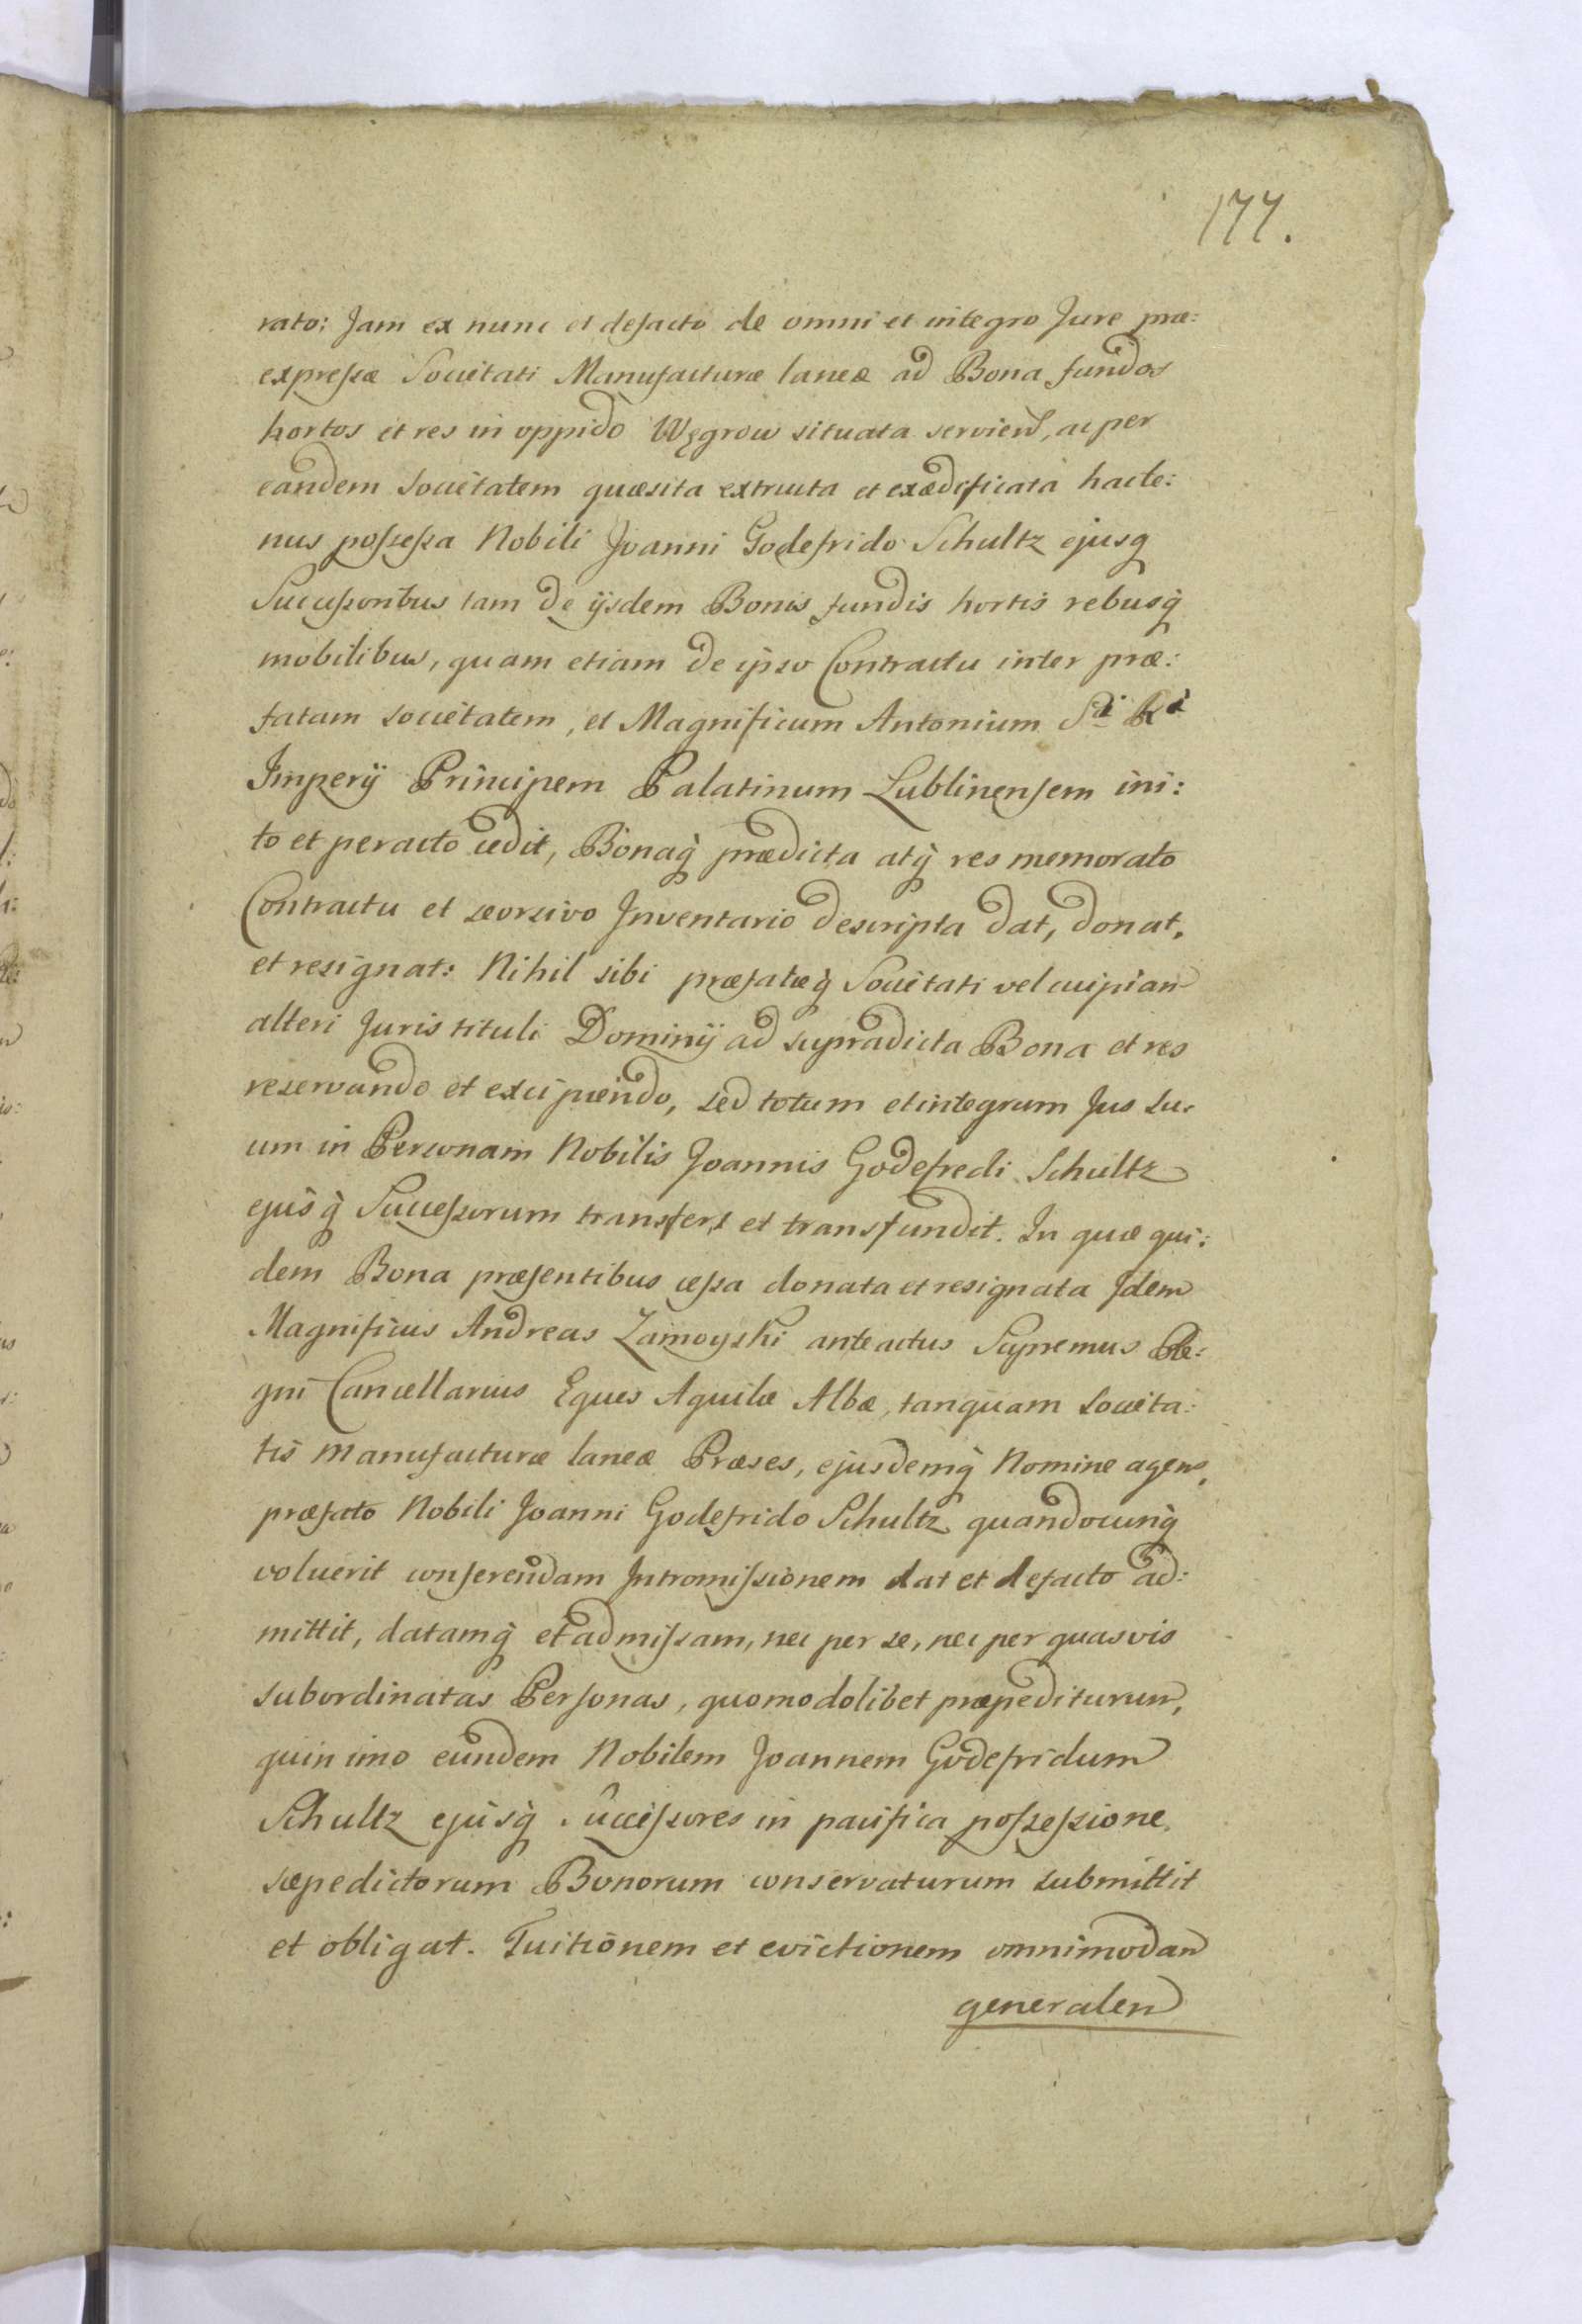 177.
rato: Jam ex nunc et defacto de omni et integro Jure præ:
expreſsæ Societati Manufacturæ laneæ ad Bona fundos
hortos et res in oppido Węgrow situata servien, ac per
eandem societatem quæsita extructa et exædificata hacte:
nus poſseſsa Nobili Joanni Godefrido Schultz ejusq
Succeſsoribus tam de ijsdem Bonis fundis hortis rebusq
mobilibus, quam etiam de ipso Contractu inter præ:
fatam societatem, et Magnificum Antonium Sᵢ Rᵢ
Imperij Principem Palatinum Lublinenſem ini:
to et peracto cedit, Bonaq prædicta atq res memorato
Contractu et seorsivo Inventario descripta dat, donat,
et resignat: Nihil sibi præfatæq Societati vel cuipiam
alteri Juris tituli Dominij ad supradicta Bona et res
reservando et excipiendo, sed totum et integrum Jus su:
um in Personam Nobilis Joannis Godefredi Schultz
ejusq Succeſsorum transfert et transfundit. In quæ qui:
dem Bona præſentibus ceſsa donata et resignata Idem
Magnificus Andreas Zamoyski anteactus Supremus Re:
gni Cancellarius Eques Aquilæ Albæ, tanquam societa:
tis manufacturæ laneæ Præses, ejusdemq Nomine agens,
præfato Nobili Joanni Godefrido Schultz quandocunq
voluerit conferendam Intromiſsionem dat et defacto ad:
mittit, datamq et admiſsam, nec per se, nec per quasvis
subordinatas Perſonas, quomodolibet præpediturum,
quin imo eundem Nobilem Joannem Godefridum
Schultz ejusq Succeſsores in pacifica poſseſsione
sæpedictorum Bonorum conservaturum submittit
et obligat. Tuitionem et evictionem omnimodam
generalem